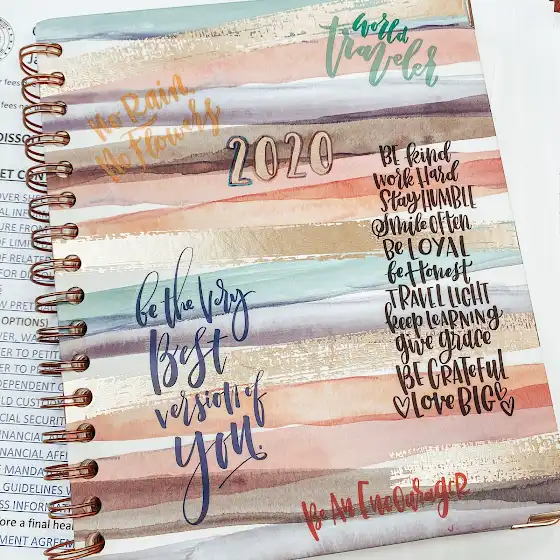 world
traveler
No Rain
No Flowers
2020
BE kind
work Hard
Stay HUMBLE
Smile often
Be LOYAL
be Honest
TRAVEL LIGHT
keep LEARNING
give grace
BE GRATEFUL
LOVE BIG
be the Very
Best
version of
you.
Be An Encourager
DISSO
ET CO
OVER SU
AL INF
URE FROM
OF LIMI
OF RELATE
FOR DI
OPTIONS)
VER, WA
ER TO PETIT
ER TO P
DEPENDENT
LD CUSTO
CIAL SECURIT
FINANCIAL
FINANCIAL AFFI
E MANDA
GUIDELINES W
SS INFORM
ore a final hea
MENT AGREEM